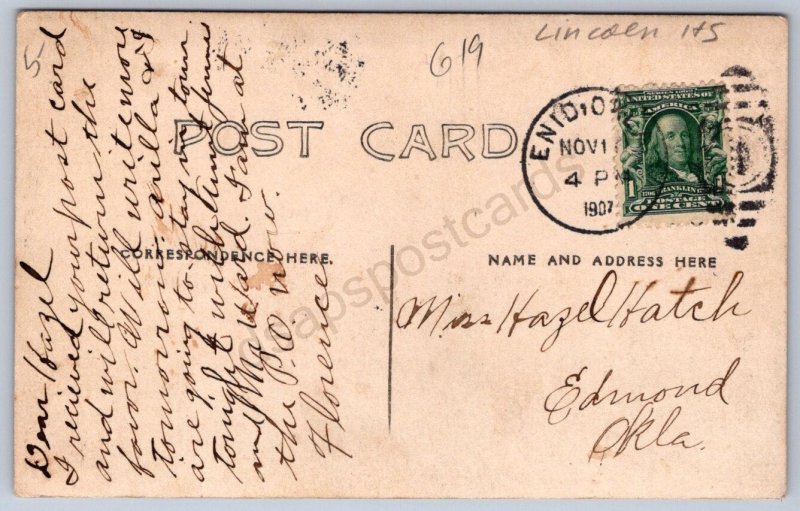 5-
619
Lincoln HS
POST CARD
ENID, O
NOV 1
4 PM
1907
SERIES 1902
UNITED STATES OF
AMERICA
1706 FRANKLIN
1 1
POSTAGE
ONE CENT
CORRESPONDENCE HERE.
NAME AND ADDRESS HERE
Dear Hazel
I recieved your post card
and will return the
favor. Will write more
tomorrow. arilla & I
are going to stay in town
tonight with
and Ward. I am at
the P.O. now.
Florence
Miss Hazel Hatch
Edmond
Okla.